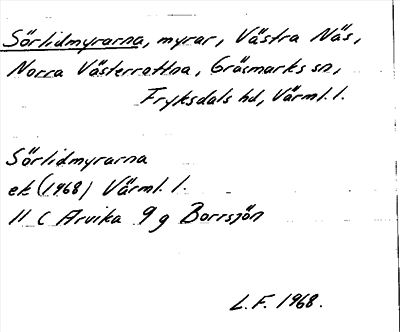 Sörlidmyrarna, myrar, Västra Näs,
Norra Västerrottna, Gräsmarks sn,
Fryksdals hd, Värml. l.
Sörlidmyrarna
ek (1968) Värml. l.
11 C Arvika 9 g Borrsjön
L.F. 1968.